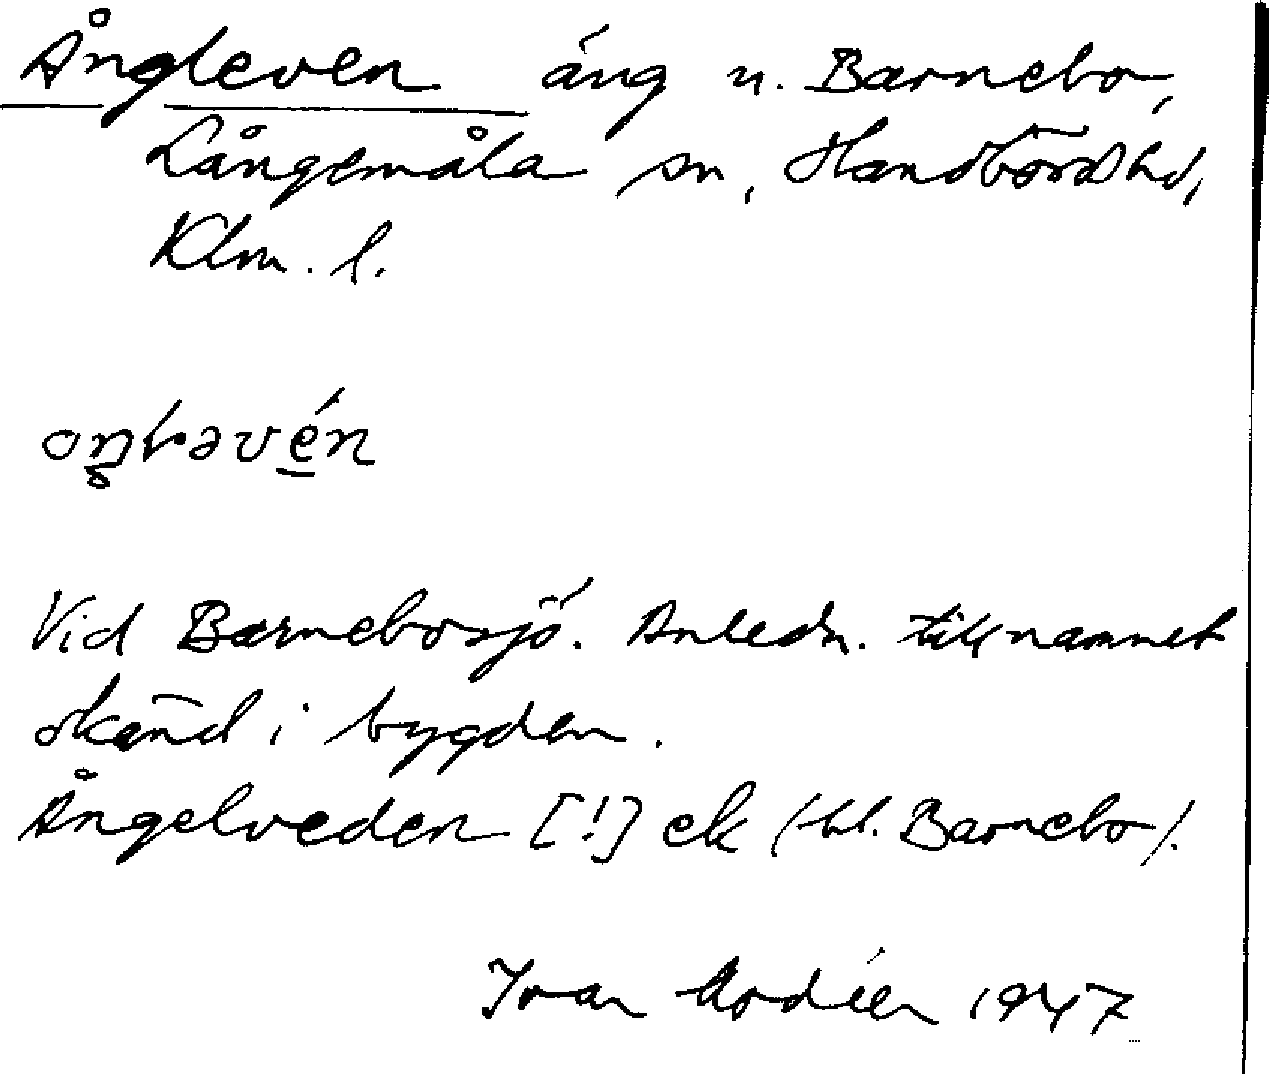 Ångleven äng u. Barnebo,
Långemåla sn, Handbörds hd,
Klm. l.
Vid Barnebosjö. Anledn. till namnet
okänd i bygden.
Ångelveden [!] ek (hl. Barnebo).
Ivar Modéer 1947